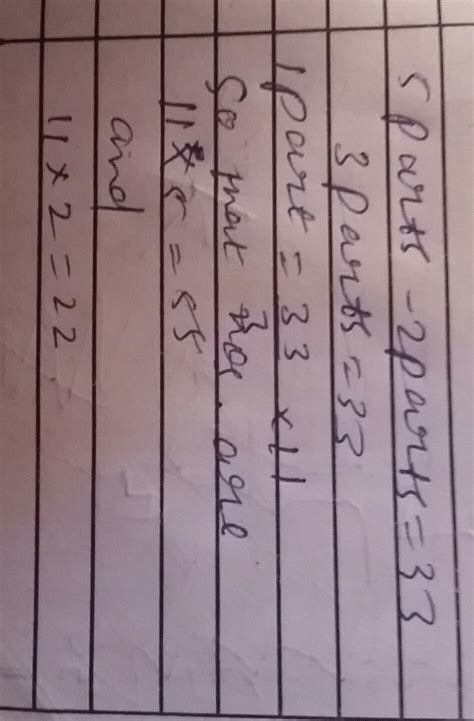 5 parts - 2 parts = 33
3 parts = 33
1 part = 33 × 11
So that nos. are
11 × 5 = 55
and
11 × 2 = 22